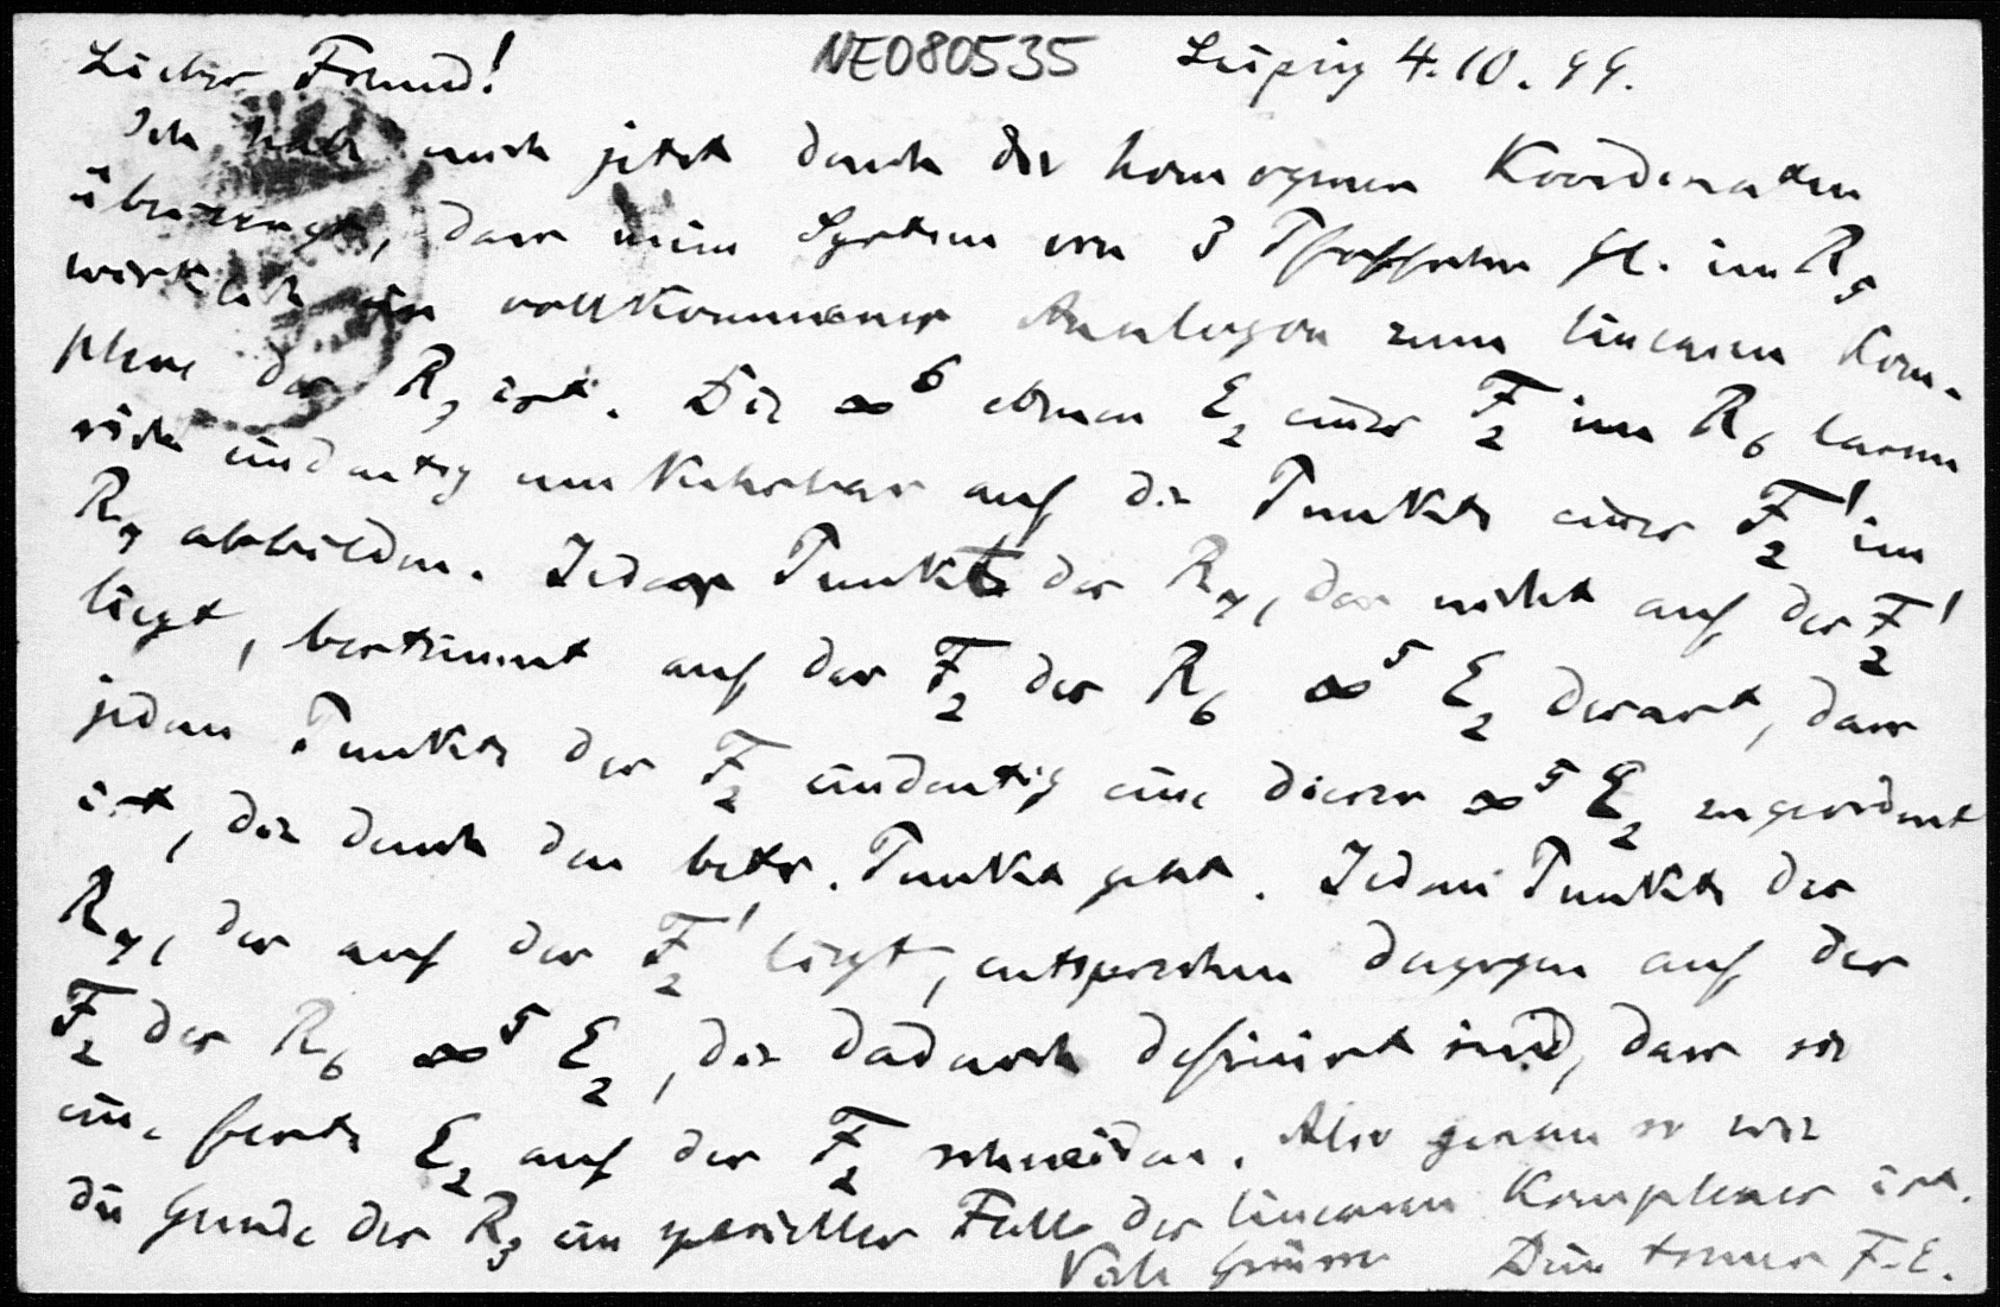 Lieber Freund! NE080535 Leipzig 4.10.99.
Ich habe mich jetzt durch die homogenen Koordinaten
überzeugt, dass mein System von 3 Pfaffschen Gl. im R₅
wirklich ein vollkommenes Analogon zum linearen Kom-
plexe des R₃ ist. Die ∞⁶ ebenen E₂ einer F₂ im R₆ lassen
sich eindeutig umkehrbar auf die Punkte einer F₂' im
R₇ abbilden. Jeder Punkt des R₇, der nicht auf der F₂'
liegt, bestimmt auf der F₂ des R₆ ∞⁵ E₂ derart, dass
jedem Punkte der F₂ eindeutig eine dieser ∞⁵ E₂ zugeordnet
ist, die durch den betr. Punkt geht. Jedem Punkte des
R₇, der auf der F₂' liegt, entsprechen dagegen auf der
F₂ des R₆ ∞⁵ E₂, die dadurch definirt sind, dass sie
eine feste E₂ auf der F₂ schneiden. Also genau so wie
die Gerade des R₃ ein specieller Fall des linearen Komplexes ist.
Viele Grüsse Dein treuer F.E.